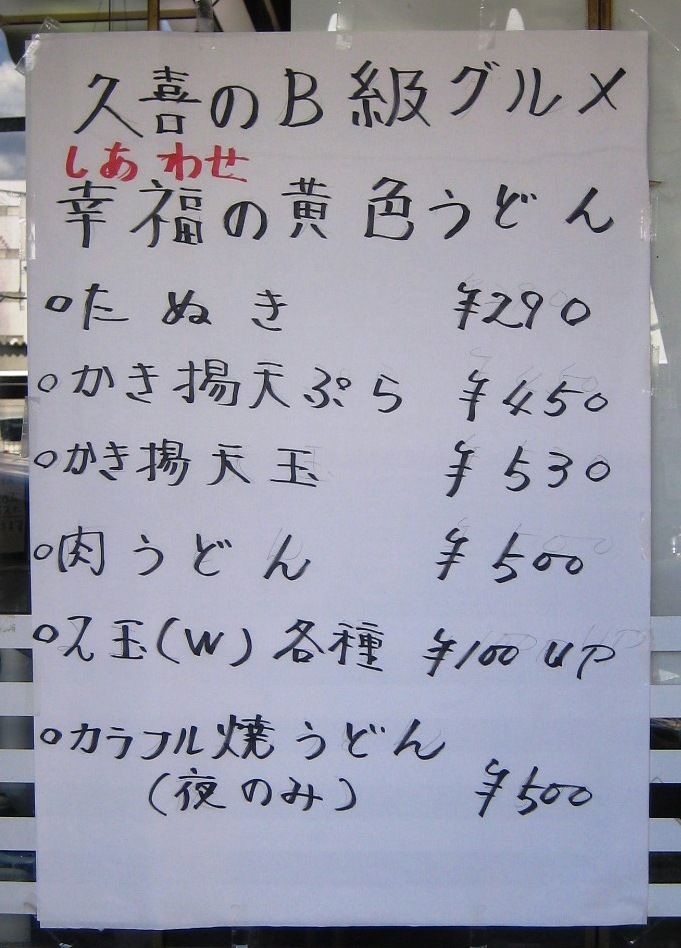 久喜のB級グルメ
しあわせ
幸福の黄色うどん
○たぬき ¥290
○かき揚天ぷら ¥450
○かき揚天玉 ¥530
○肉うどん ¥500
○2玉(W)各種 ¥100UP
○カラフル焼うどん
(夜のみ) ¥500